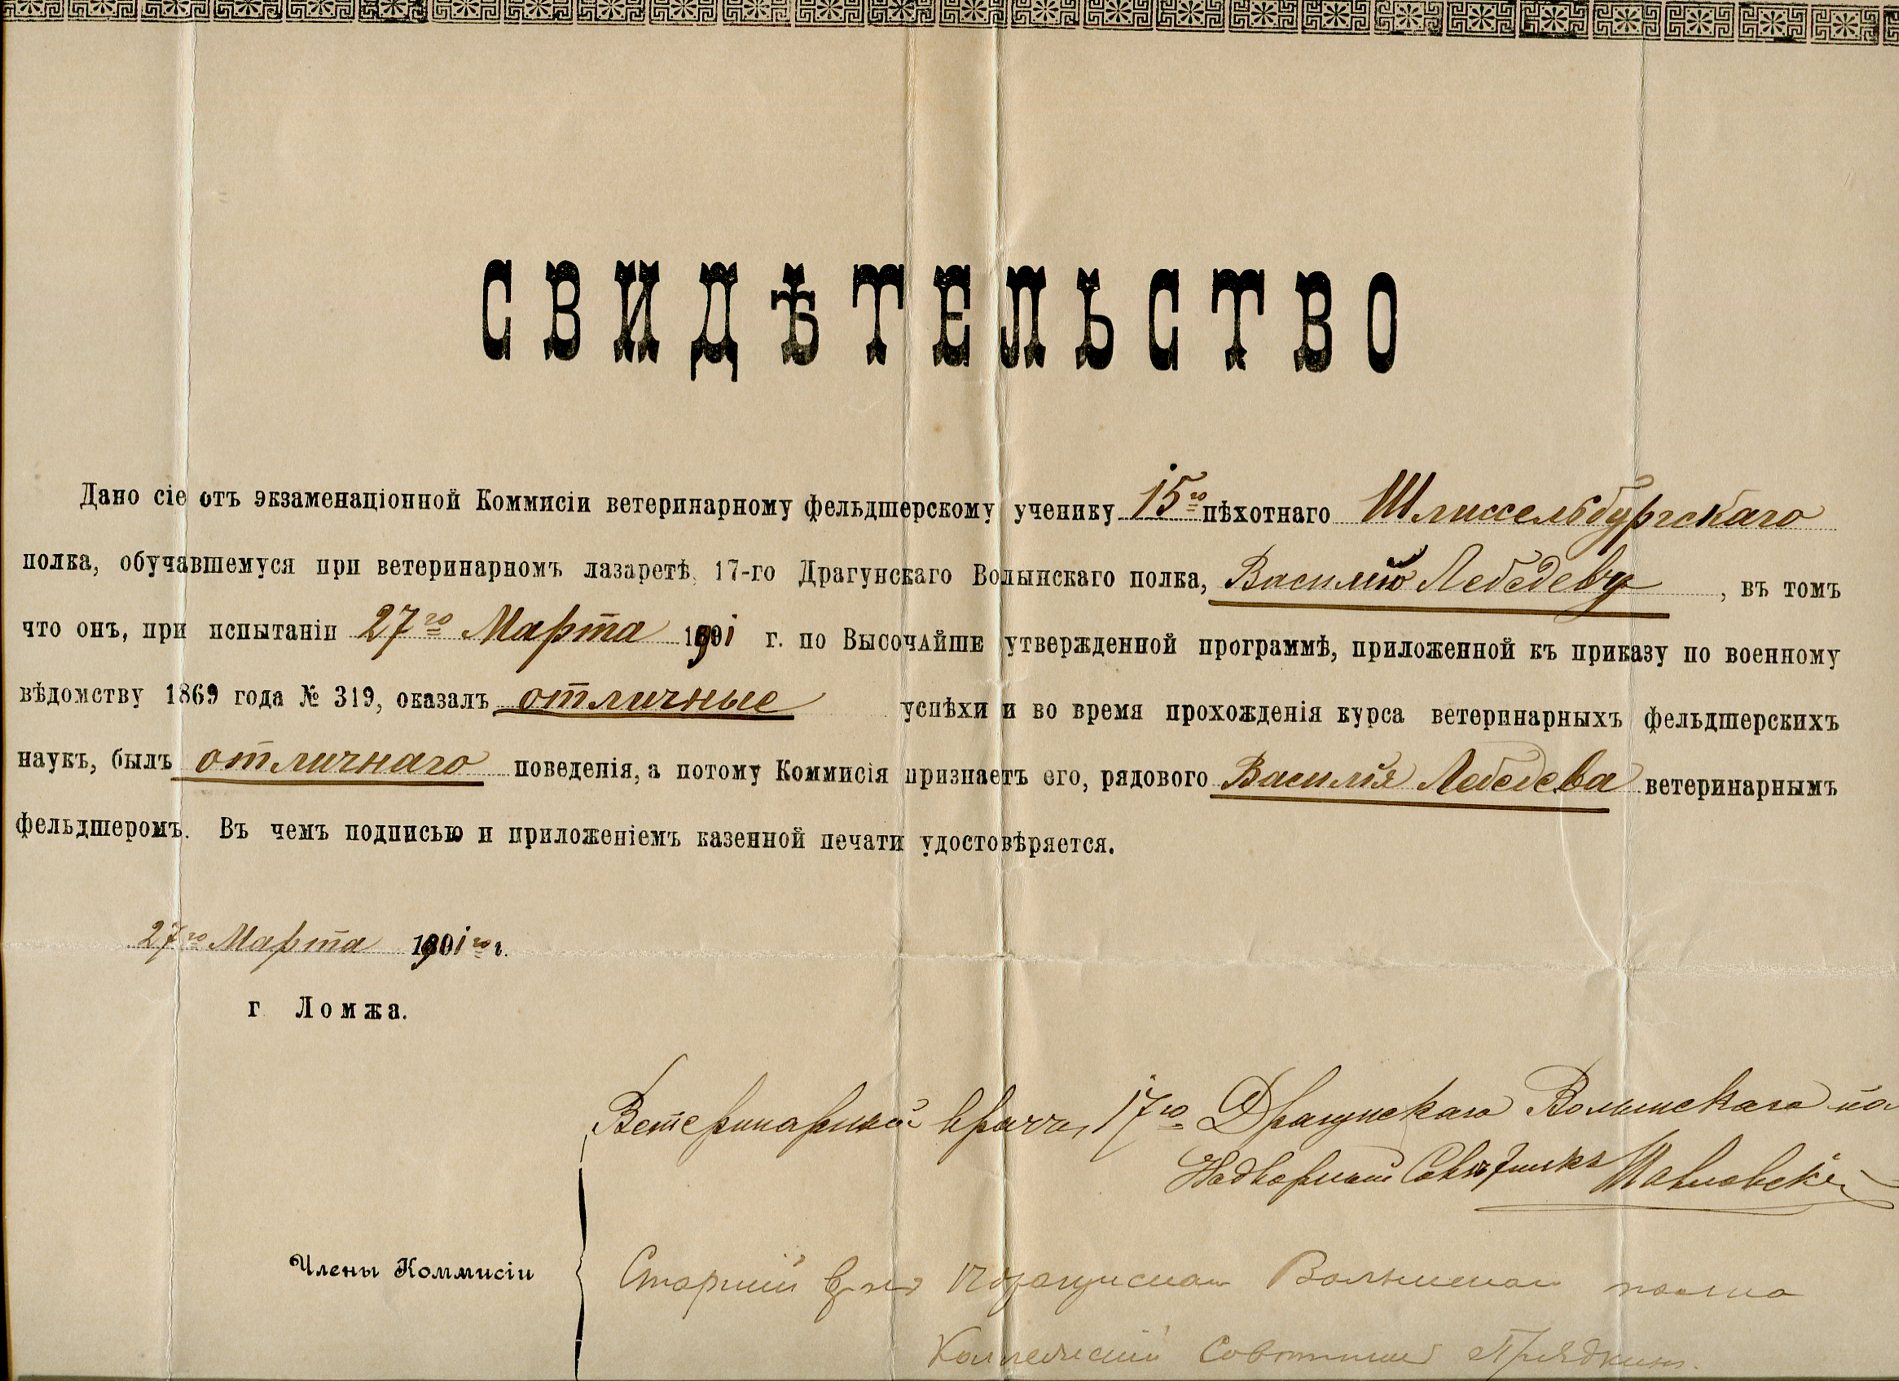 СВИДѢТЕЛЬСТВО
Дано сіе отъ экзаменаціонной Коммисіи ветеринарному фельдшерскому ученику 15го пѣхотнаго Шлиссельбургскаго
полка, обучавшемуся при ветеринарномъ лазаретѣ, 17-го Драгунскаго Волынскаго полка, Василію Лебедеву, въ томъ
что онъ, при испытаніи 27го Марта 1901 г. по ВЫСОЧАЙШЕ утвержденной программѣ, приложенной къ приказу по военному
вѣдомству 1869 года № 319, оказалъ отличные успѣхи и во время прохожденія курса ветеринарныхъ фельдшерскихъ
наукъ, былъ отличнаго поведенія, а потому Коммисія признаетъ его, рядового Василія Лебедева ветеринарнымъ
фельдшеромъ. Въ чемъ подписью и приложеніемъ казенной печати удостовѣряется.
27го Марта 1901го г.
г Ломжа.
Ветеринарный врачъ, 17го Драгунскаго Волынскаго по
Надворный Совѣтникъ Павловскій
Члены Коммисіи
Старшій врачъ 17 Драгунскаго Волынскаго полка
Коллежскій Совѣтникъ